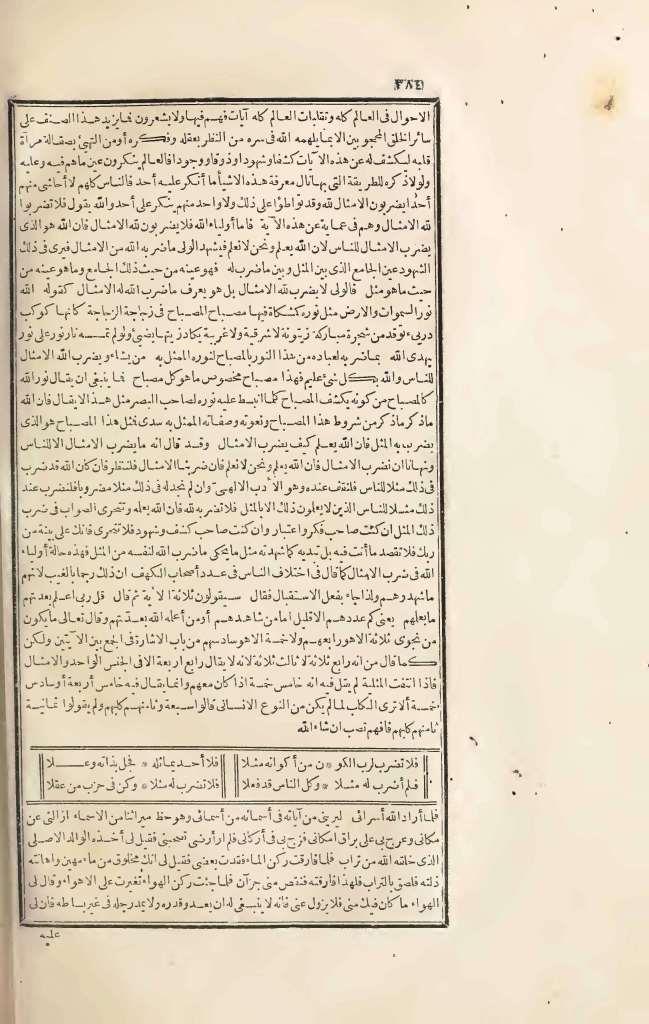 ٣٨٤
الاحوال فى العالم كله وتقلبات العالم كله آيات فهم فيها ولا يشعرون فما يزيد هذا الصنف على
سائر الخلق المحجوبين الا بما يلهمه الله فى سره من النظر بعقله وفكره أو من التهيئ بصقالة مرآة
قلبه ليكشف له عن هذه الآيات كشفا وشهودا وذوقا ووجودا فالعالم ينكرون عين ماهم فيه وعليه
ولولا ذكره للطريقة التى بها نال معرفة هذه الاشيا ما أنكر عليه أحد فالناس كلهم لا أحاشى منهم
أحدا يضربون الامثال لله وقد تواطؤا على ذلك ولا واحد منهم ينكر على أحد والله يقول فلا تضربوا
لله الامثال وهم فى عماية عن هذه الآية فاما أولياء الله فلا يضربون لله الامثال فان الله هو الذى
يضرب الامثال للناس لان الله يعلم ونحن لا نعلم فيشهد الولى ما ضربه الله من الامثال فيرى فى ذلك
الشهود عين الجامع الذى بين المثل وبين ما ضرب له فهو عينه من حيث ذلك الجامع وما هو عينه من
حيث ماهو مثل فالولى لا يضرب لله الامثال بل هو يعرف ما ضرب الله له الامثال كقوله الله
نور السموات والارض مثل نوره كمشكاة فيها مصباح المصباح فى زجاجة الزجاجة كانها كوكب
درىء توقد من شجرة مباركة زيتونة لا شرقية ولا غربية يكاد زيتها يضىء ولو لم تمسسه نار نور على نور
يهدى الله بما ضربه لعباده من هذا النور بالمصباح لنوره الممثل به من يشاء ويضرب الله الامثال
للناس والله بكل شئ عليم فهذا مصباح مخصوص ماهو كل مصباح فما ينبغى ان يقال نور الله
كالمصباح من كونه يكشف المصباح كلما انبسط عليه نوره لصاحب البصر مثل هذا لا يقال فان الله
ما ذكر ما ذكر من شروط هذا المصباح ونعوته وصفاته الممثل به سدى فمثل هذا المصباح هو الذى
يضرب به المثل فان الله يعلم كيف يضرب الامثال وقد قال انه ما يضرب الامثال الا للناس
ونهانا ان نضرب الامثال فان الله يعلم ونحن لا نعلم فان ضربنا الامثال فلننظر فان كان الله قد ضرب
فى ذلك مثلا للناس فلنقف عنده وهو الادب الالهى وان لم نجد له فى ذلك مثلا مضروبا فلنضرب عند
ذلك مثلا للناس الذين لا يعلمون ذلك الا بالمثل فلا تضربه لله فان الله يعلمه وتتحرى الصواب فى ضرب
ذلك المثل ان كنت صاحب فكر واعتبار وان كنت صاحب كشف وشهود فلا تتحرى فانك على بينة من
ربك فلا تقصد ما أنت فيه بل تبديه كما شهدته مثل ما يحكى ما ضرب الله لنفسه من المثل فهذه حالة أولياء
الله فى ضرب الامثال كما قال فى اختلاف الناس فى عدد أصحاب الكهف ان ذلك رجما بالغيب لانهم
ما شهدوهم ولذا جاء بفعل الاستقبال فقال سيقولون ثلاثة الآية ثم قال قل ربى اعلم بعدتهم
ما يعلهم يعنى كم عددهم الا قليل اما من شاهدهم أو من أعلمه الله بعدتهم وقال تعالى ما يكون
من نجوى ثلاثة الا هو رابعهم ولا خمسة الا هو سادسهم من باب الاشارة فى الجمع بين الآيتين ولكن
كما قال من انه رابع ثلاثة لا ثالث ثلاثة لانه لا يقال رابع اربعة الا فى الجنس الواحد والامثال
فاذا انتفت المثلية لم يقل فيه انه خامس خمسة اذا كان معهم وانما يقال فيه خامس أربعة أو سادس
خمسة ألا ترى الكلب لما لم يكن من النوع الانسانى قالوا سبعة وثامنهم كلبهم ولم يقولوا ثمانية
ثامنهم كلبهم فافهم تصب ان شاء الله
فلا تضرب لرب الكو * ن من أكوانه مثلا فلا أحد يماثله * فجل بذاته وعلا
فلم أضرب له مثلا * وكل الناس قد فعلا فلا تضرب له مثلا * وكن فى حزب من عقلا
فلما أراد الله أسرائى ليرينى من آياته فى أسمائه من أسمائى وهو حظ ميراثنا من الاسراء ازالنى عن
مكانى وعرج بى على براق امكانى فزج بى فى أركانى فلم ار أرضى تصحبنى فقيل لى أخذه الوالد الاصلى
الذى خلقه الله من تراب فلما فارقت ركن الماء فقدت بعضى فقيل لى انك مخلوق من ماء مهين واهانته
ذلته فلصق بالتراب فلهذا فارقته فنقص منى جزآن فلما جئت ركن الهواء تغيرت على الاهواء وقال لى
الهواء ما كان فيك منى فلا يزول عنى فانه لا ينبغى له ان يعدو قدره ولا يمد رجله فى غير بساطه فان لى
عليه